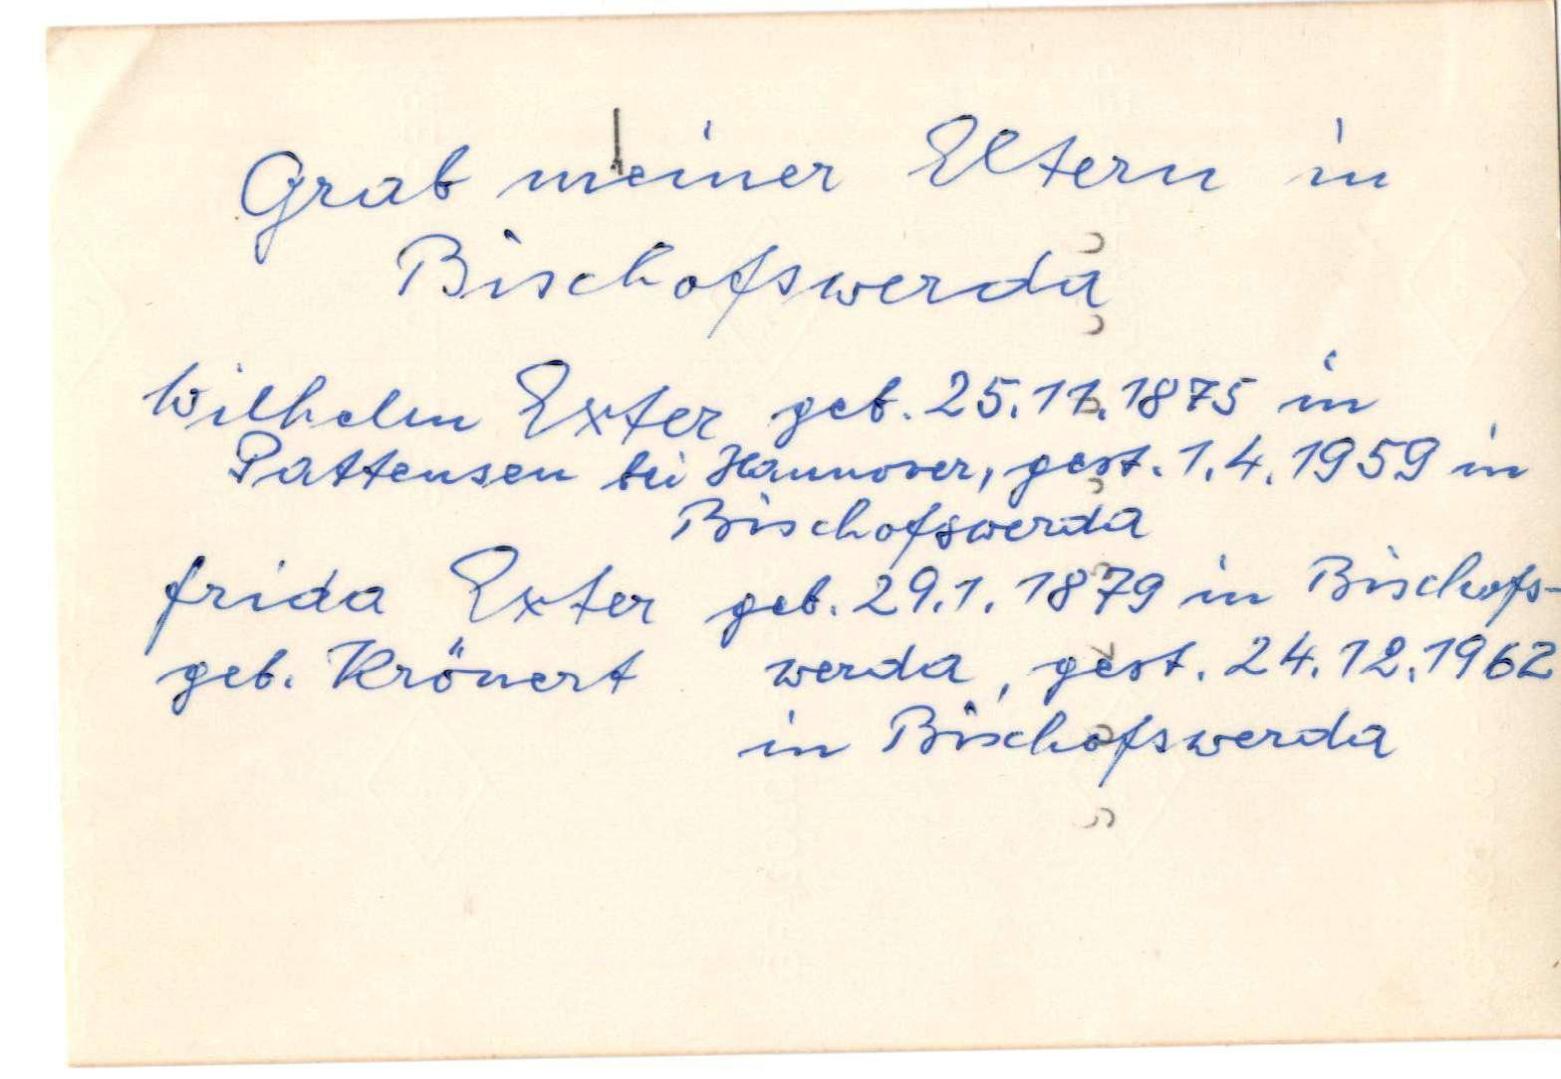 Grab meiner Eltern in
Bischofswerda
Wilhelm Exter geb. 25.11.1875 in
Pattensen bei Hannover, gest. 1.4.1959 in
Bischofswerda
Frida Exter geb. 29.1.1879 in Bischofs-
geb. Krönert werda, gest. 24.12.1962
in Bischofswerda